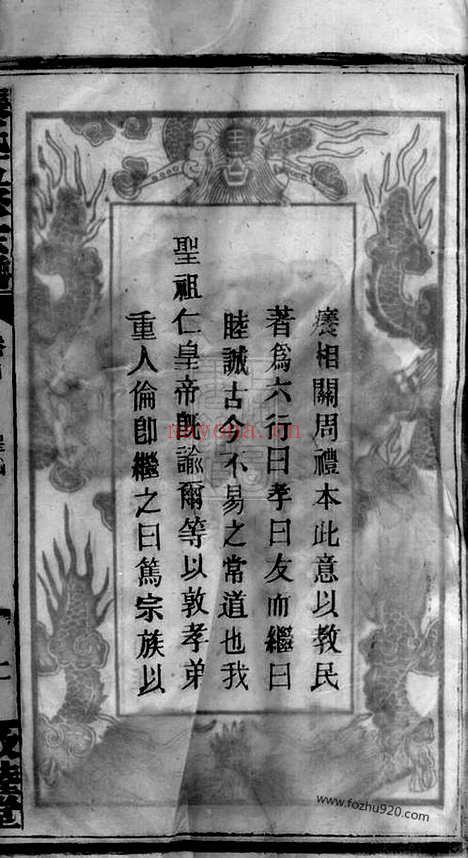 癢相關周禮本此意以教民
著為六行曰孝曰友而繼曰
睦誠古今不易之常道也我
聖祖仁皇帝旣諭爾等以敦孝弟
重人倫卽繼之曰篤宗族以
敦睦堂
nayona.cn
www.fozhu920.com